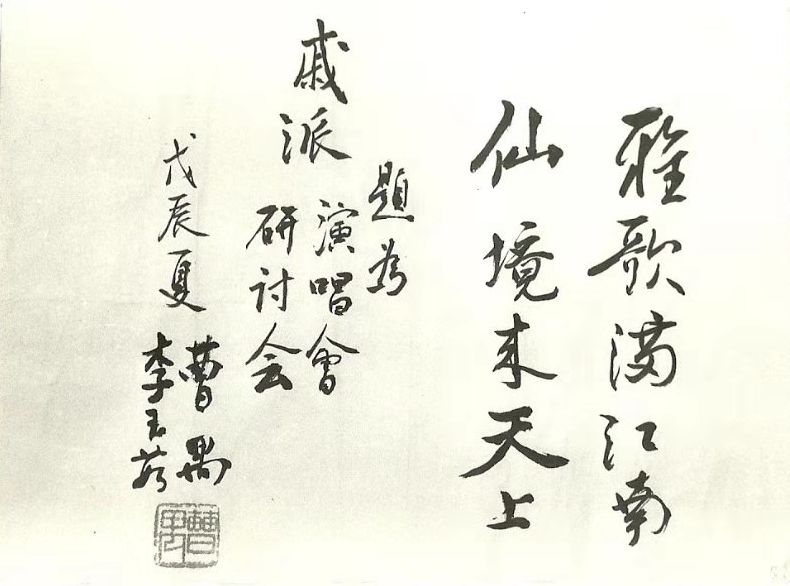 雅歌满江南
仙境来天上
题为
戚派
演唱會
研讨会
戊辰夏
曹禺
李玉茹
曹禺